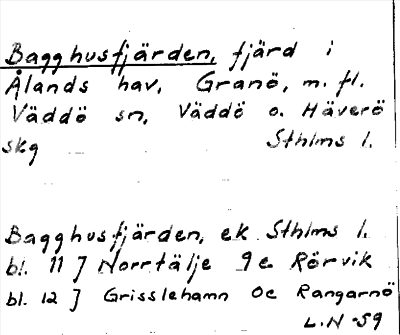 Bagghusfjärden, fjärd i
Ålands hav, Granö, m. fl.
Väddö sn, Väddö o. Häverö
skg Sthlms l.
Bagghusfjärden, ek. Sthlms l.
bl. 11 J Norrtälje 9e Rörvik
bl. 12 J Grisslehamn 0c Rangarnö
L.N -59